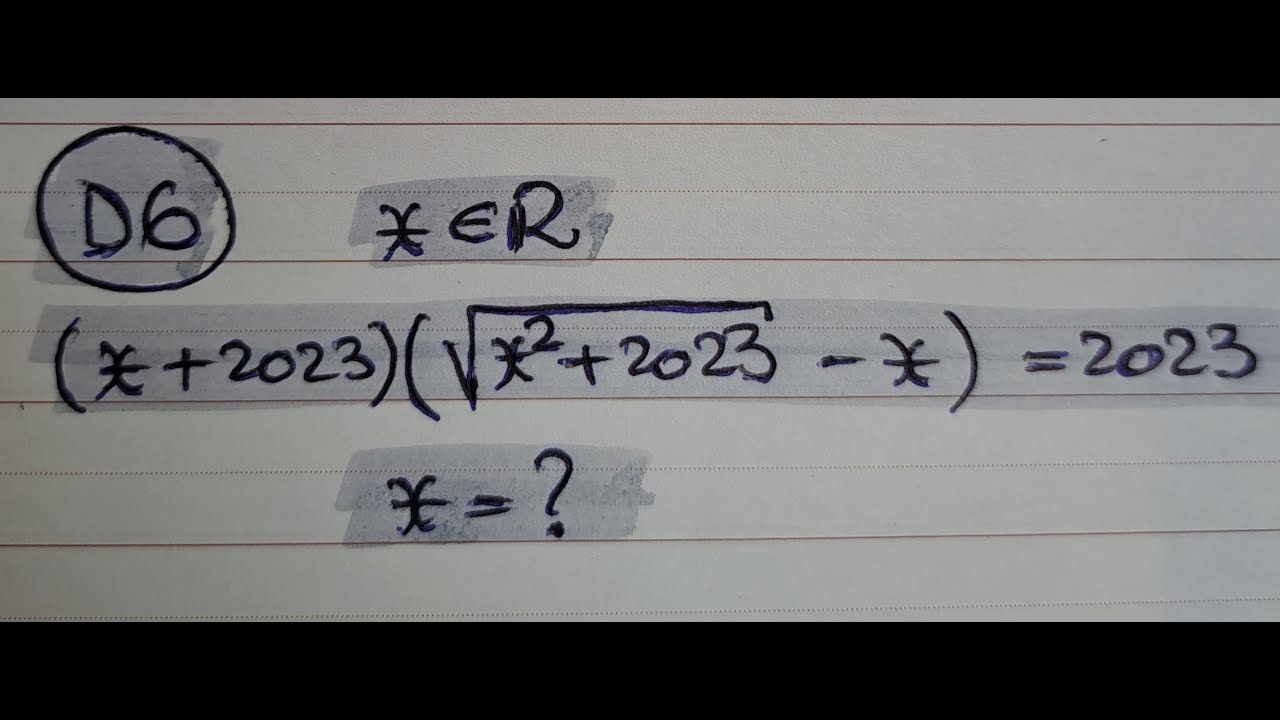 D6 x ∈ R
(x + 2023)(√(x² + 2023) - x) = 2023
x = ?